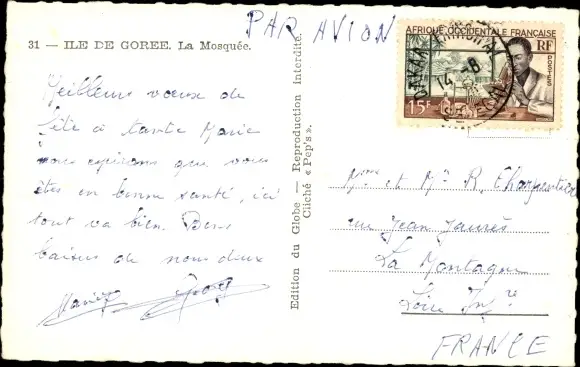 PAR AVION
31 — ILE DE GOREE. La Mosquée.
Meilleurs vœux de
fête à tante Marie
nous espérons que vous
êtes en bonne santé, ici
tout va bien. Bons
baisers de nous deux
Edition du Globe — Reproduction Interdite.
Cliché « Pep's ».
AFRIQUE OCCIDENTALE FRANÇAISE
RF
POSTES
15F
DAKAR
14 - 8
Mme et Mr R. Charpentier
rue Jean Jaurès
La Montagne
Loire Infre
FRANCE